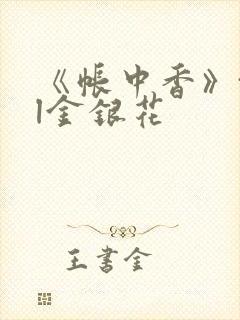 《帐中香》
|金银花
王书金